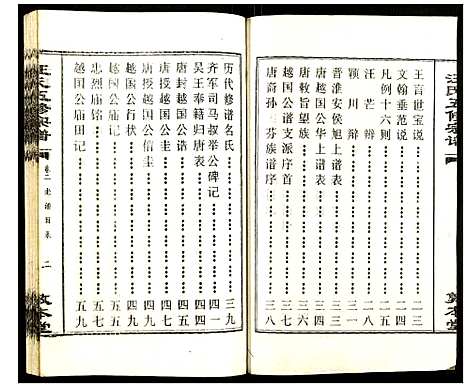 汪氏五修宗谱
王言世宝说……二三
文翰垂范说……二四
凡例十六则……二五
汪芒辩……二八
颍川辩……三一
唐敕牧旨敬题……三二
晋淮安侯旭上谱表……三三
越国公华上谱表……三四
越国公谱支派序首……三七
唐裔孙芬族谱序……三八
敦本堂
历代修谱名氏……三九
齐军司马叔举公碑记……四一
吴王奉籍归唐表……四六
唐封越国公诰……四七
唐授越国公圭……四七
唐授越国公信圭……四九
越国公庙记……五一
忠烈庙铭……五七
越国公庙田记……五九
汪氏五修宗谱
卷二 老谱目录 二
敦本堂